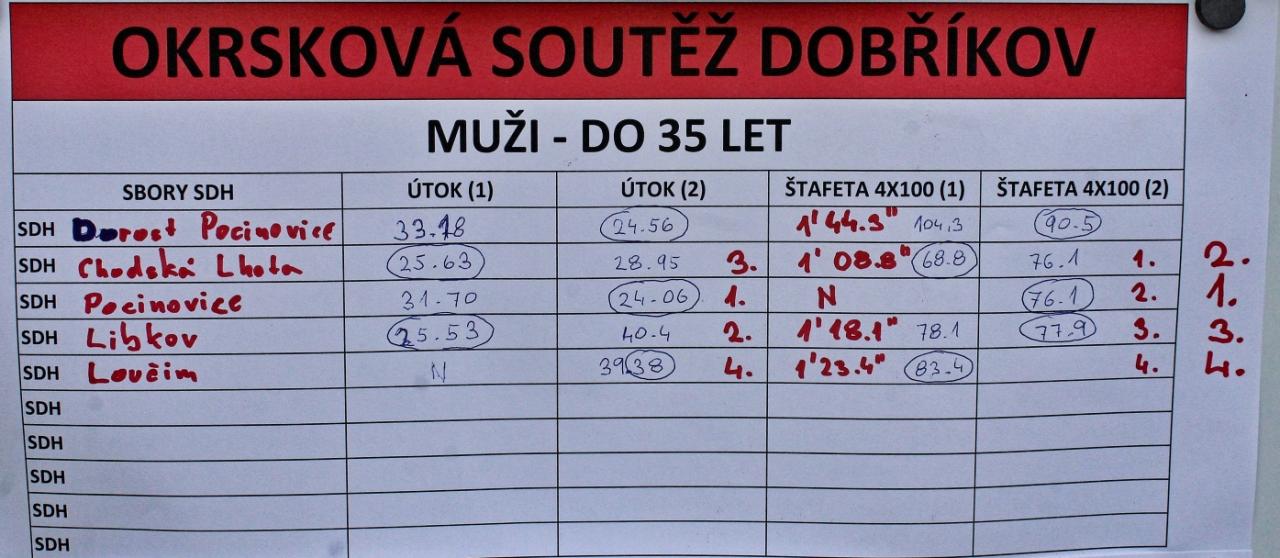 OKRSKOVÁ SOUTĚŽ DOBŘÍKOV
MUŽI - DO 35 LET
SBORY SDH ÚTOK (1) ÚTOK (2) ŠTAFETA 4X100 (1) ŠTAFETA 4X100 (2)
SDH Dorost Pocinovice 33.18 24.56 1'44.3" 104,3 90.5
SDH Chodská Lhota 25.63 28.95 3. 1'08.8" 68.8 76.1 1. 2.
SDH Pocinovice 31.70 24.06 1. N 76.1 2. 1.
SDH Libkov 25.53 40.4 2. 1'18.1" 78.1 77.9 3. 3.
SDH Loučim N 39.38 4. 1'23.4" 83.4 4. 4.
SDH
SDH
SDH
SDH
SDH